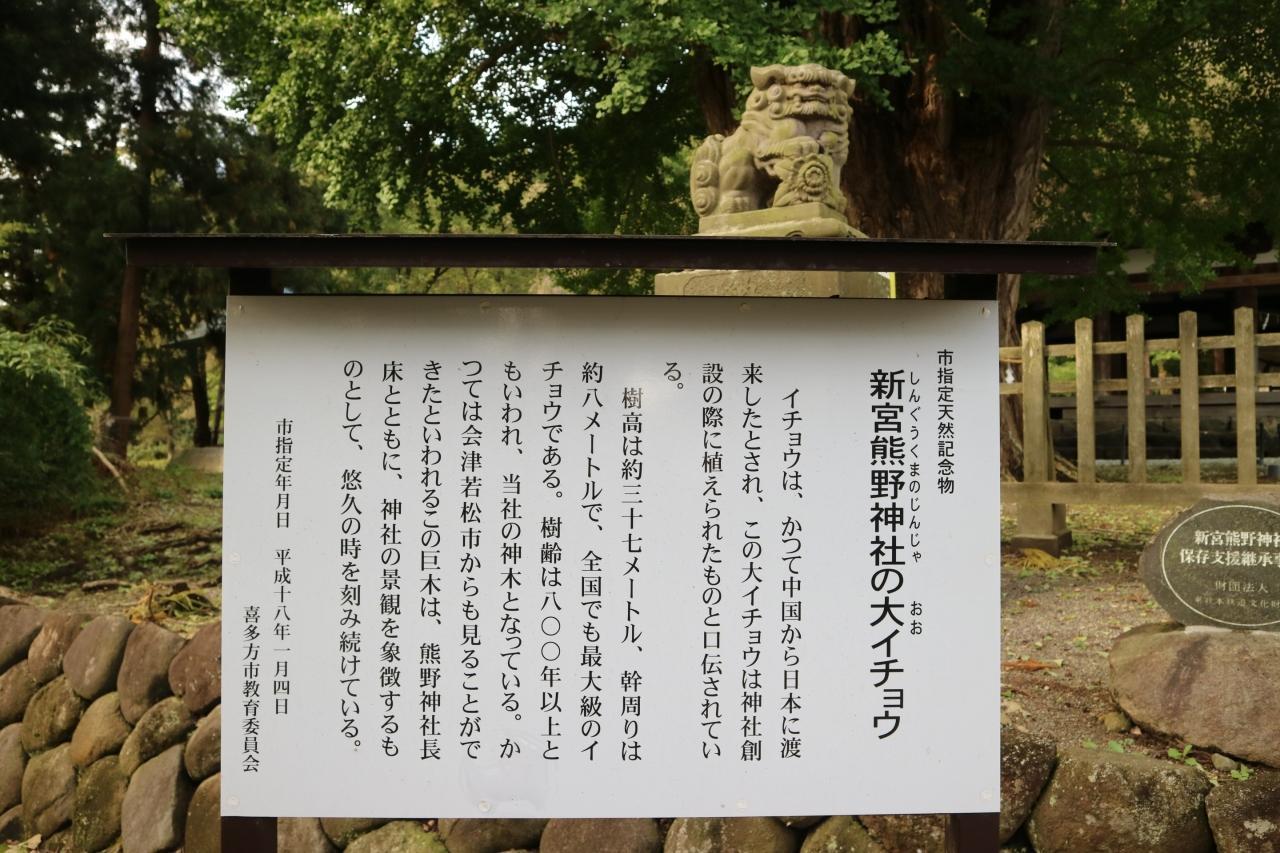 市指定天然記念物
しんぐうくまのじんじゃ　おお
新宮熊野神社の大イチョウ
イチョウは、かつて中国から日本に渡
来したとされ、この大イチョウは神社創
設の際に植えられたものと口伝されてい
る。
樹高は約三十七メートル、幹周りは
約八メートルで、全国でも最大級のイ
チョウである。樹齢は八〇〇年以上と
もいわれ、当社の神木となっている。か
つては会津若松市からも見ることがで
きたといわれるこの巨木は、熊野神社長
床とともに、神社の景観を象徴するも
のとして、悠久の時を刻み続けている。
市指定年月日　平成十八年一月四日
喜多方市教育委員会
新宮熊野神社
保存支援継承事
財団法人
東日本鉄道文化財